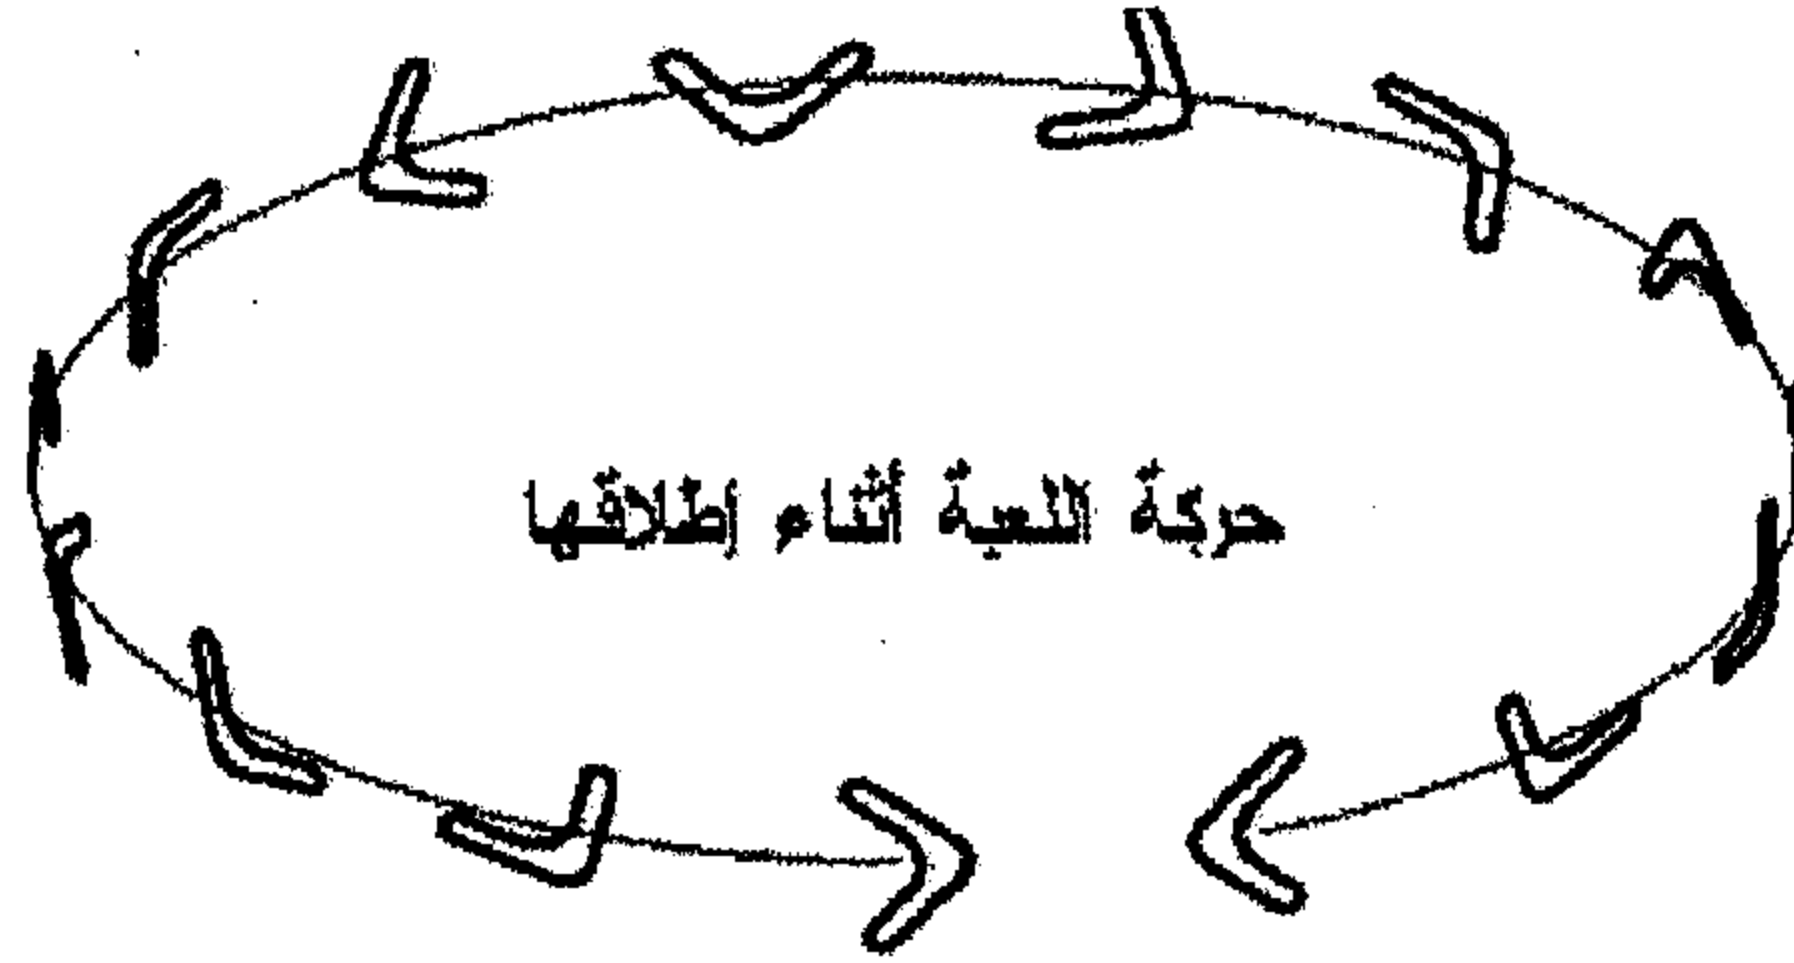 حركة اللعبة أثناء إطلاقها